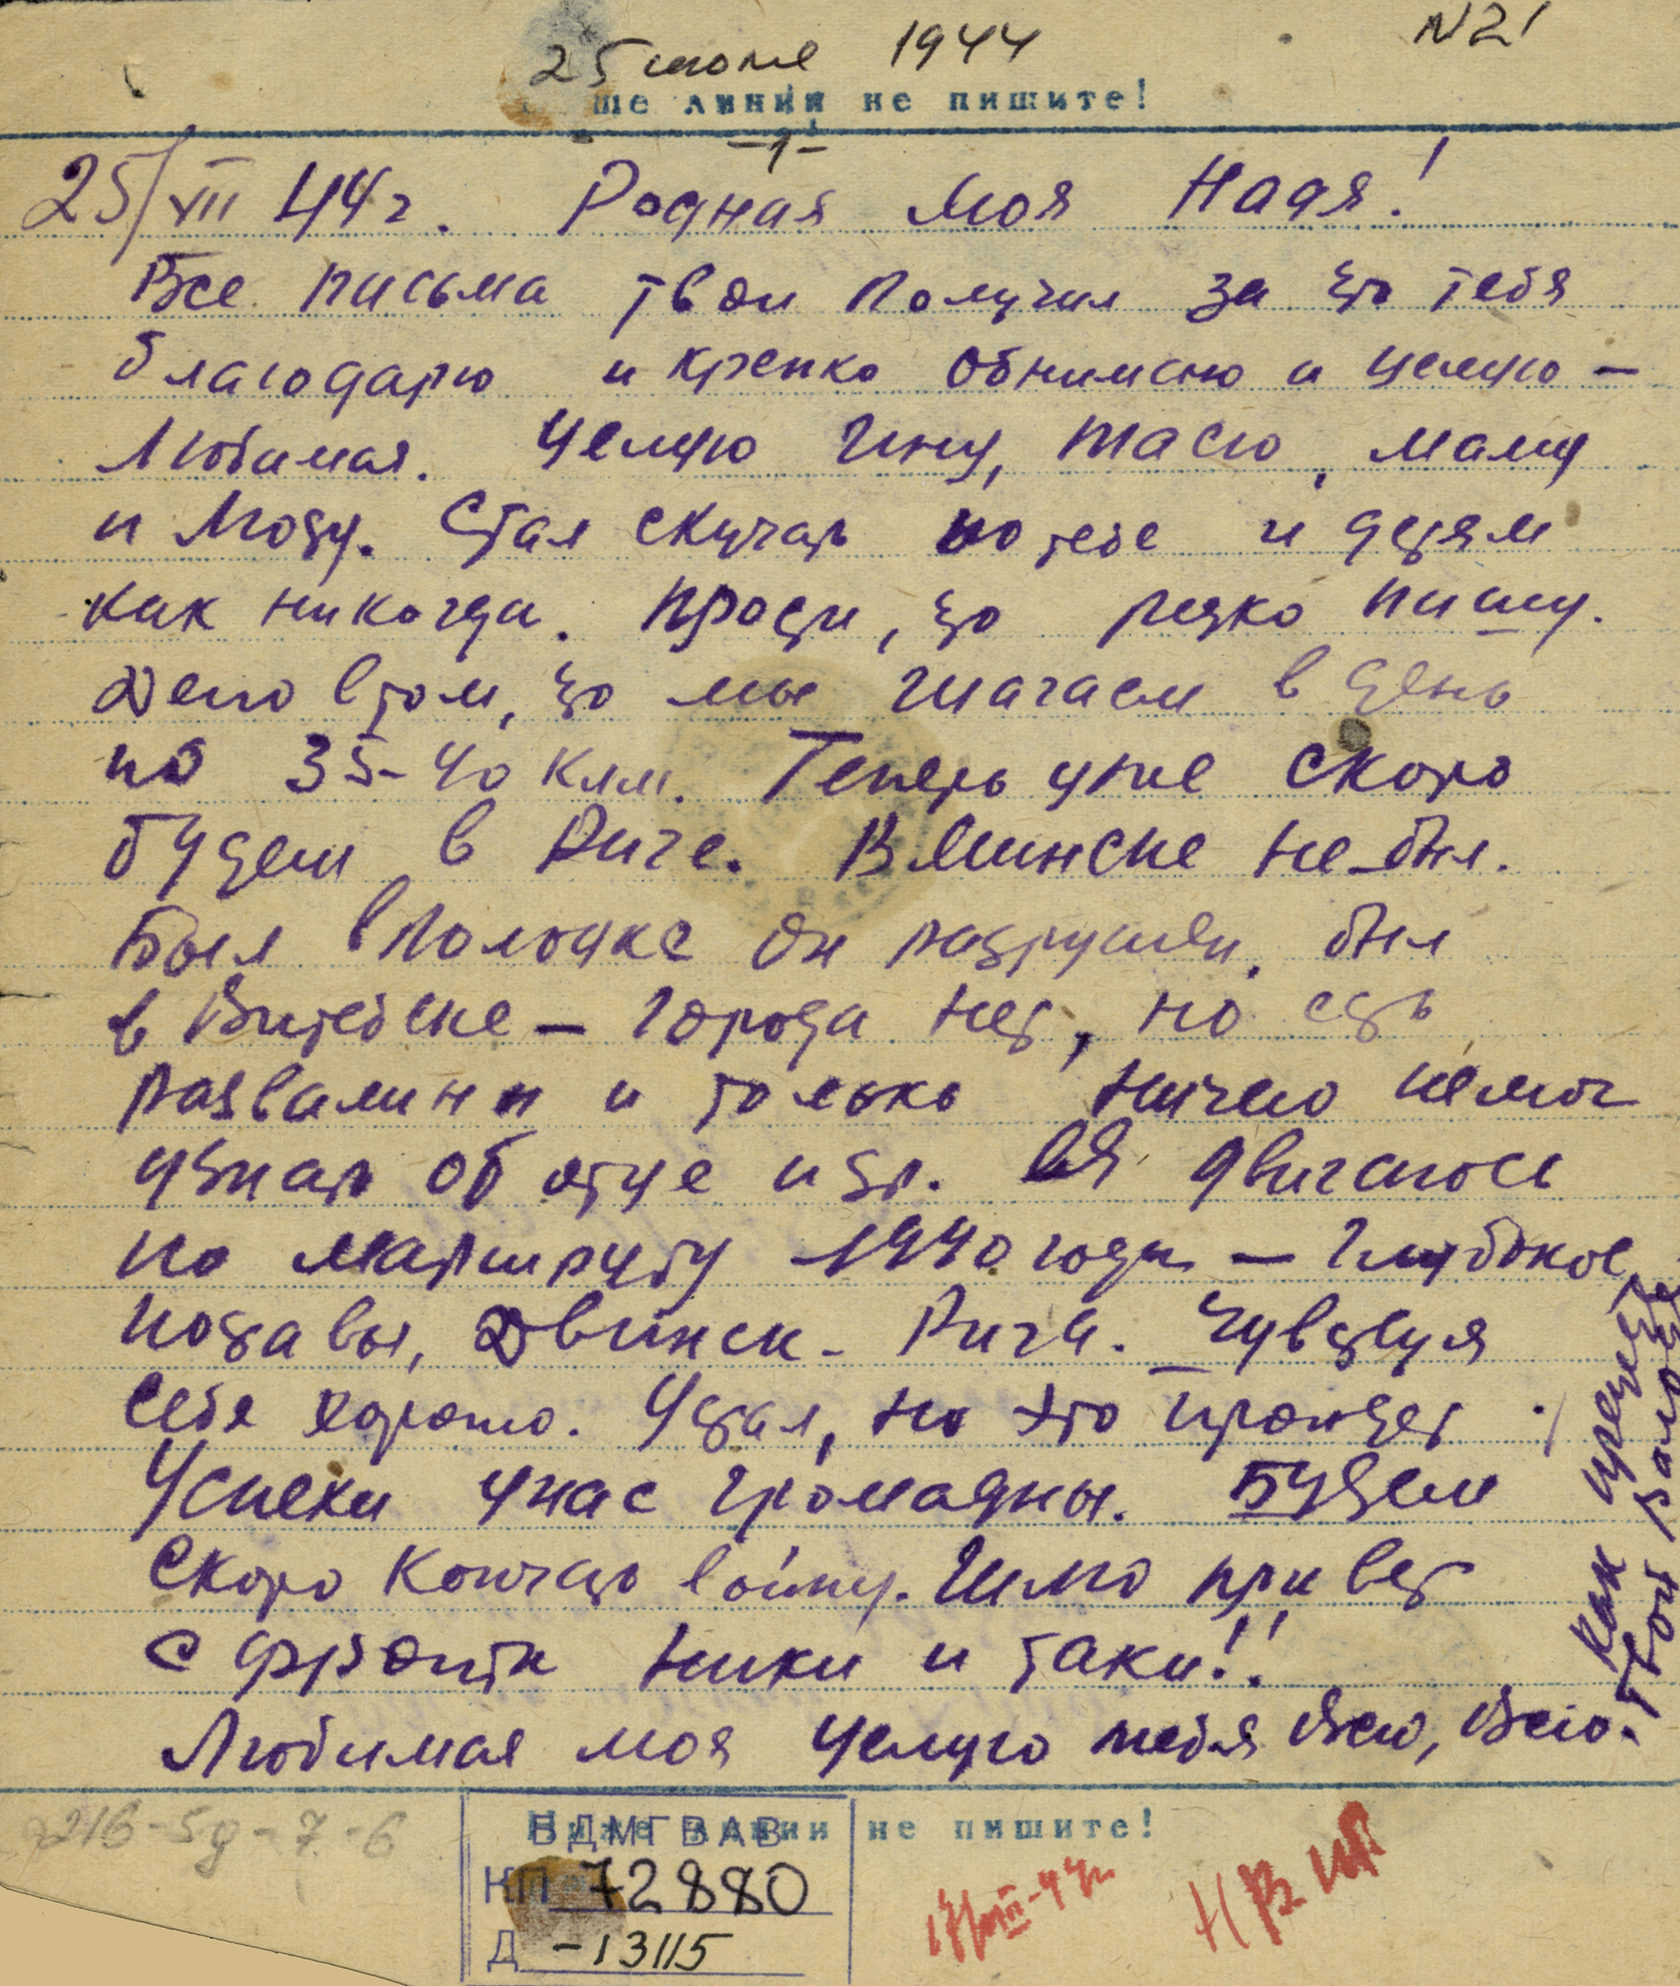 25 июля 1944
N21
ше линии не пишите!
-1-
25/VII 44г. Родная моя Надя!
Все письма твои получил за что тебя
благодарю и крепко обнимаю и целую —
Любимая. Целую Нину, Тасю, маму
и Люду. Стал скучать по тебе и детям
как никогда. Прости, что редко пишу.
Дело в том, что мы шагаем в день
по 35-40 клм. Теперь уже скоро
будем в Риге. В Минске не был.
Был в Полоцке он разрушен, был
в Витебске — города нет, но есть
развалины и только ничего не мог
узнать об отце и др. Я двигаюсь
по маршруту 1940 года — Глубокое,
Поставы, Двинск - Рига. Чувствуя
себя хорошо. Устал, но это пройдет.
Успехи ужас громадны. Будем
скоро кончать войну. Шлю привет
с фронта
Любимая моя целую тебя всю, всю.
Как
Твой
216-5д-7-6
Ниже линии не пишите!
БДМГВАВ
КП 72880
Д -13115